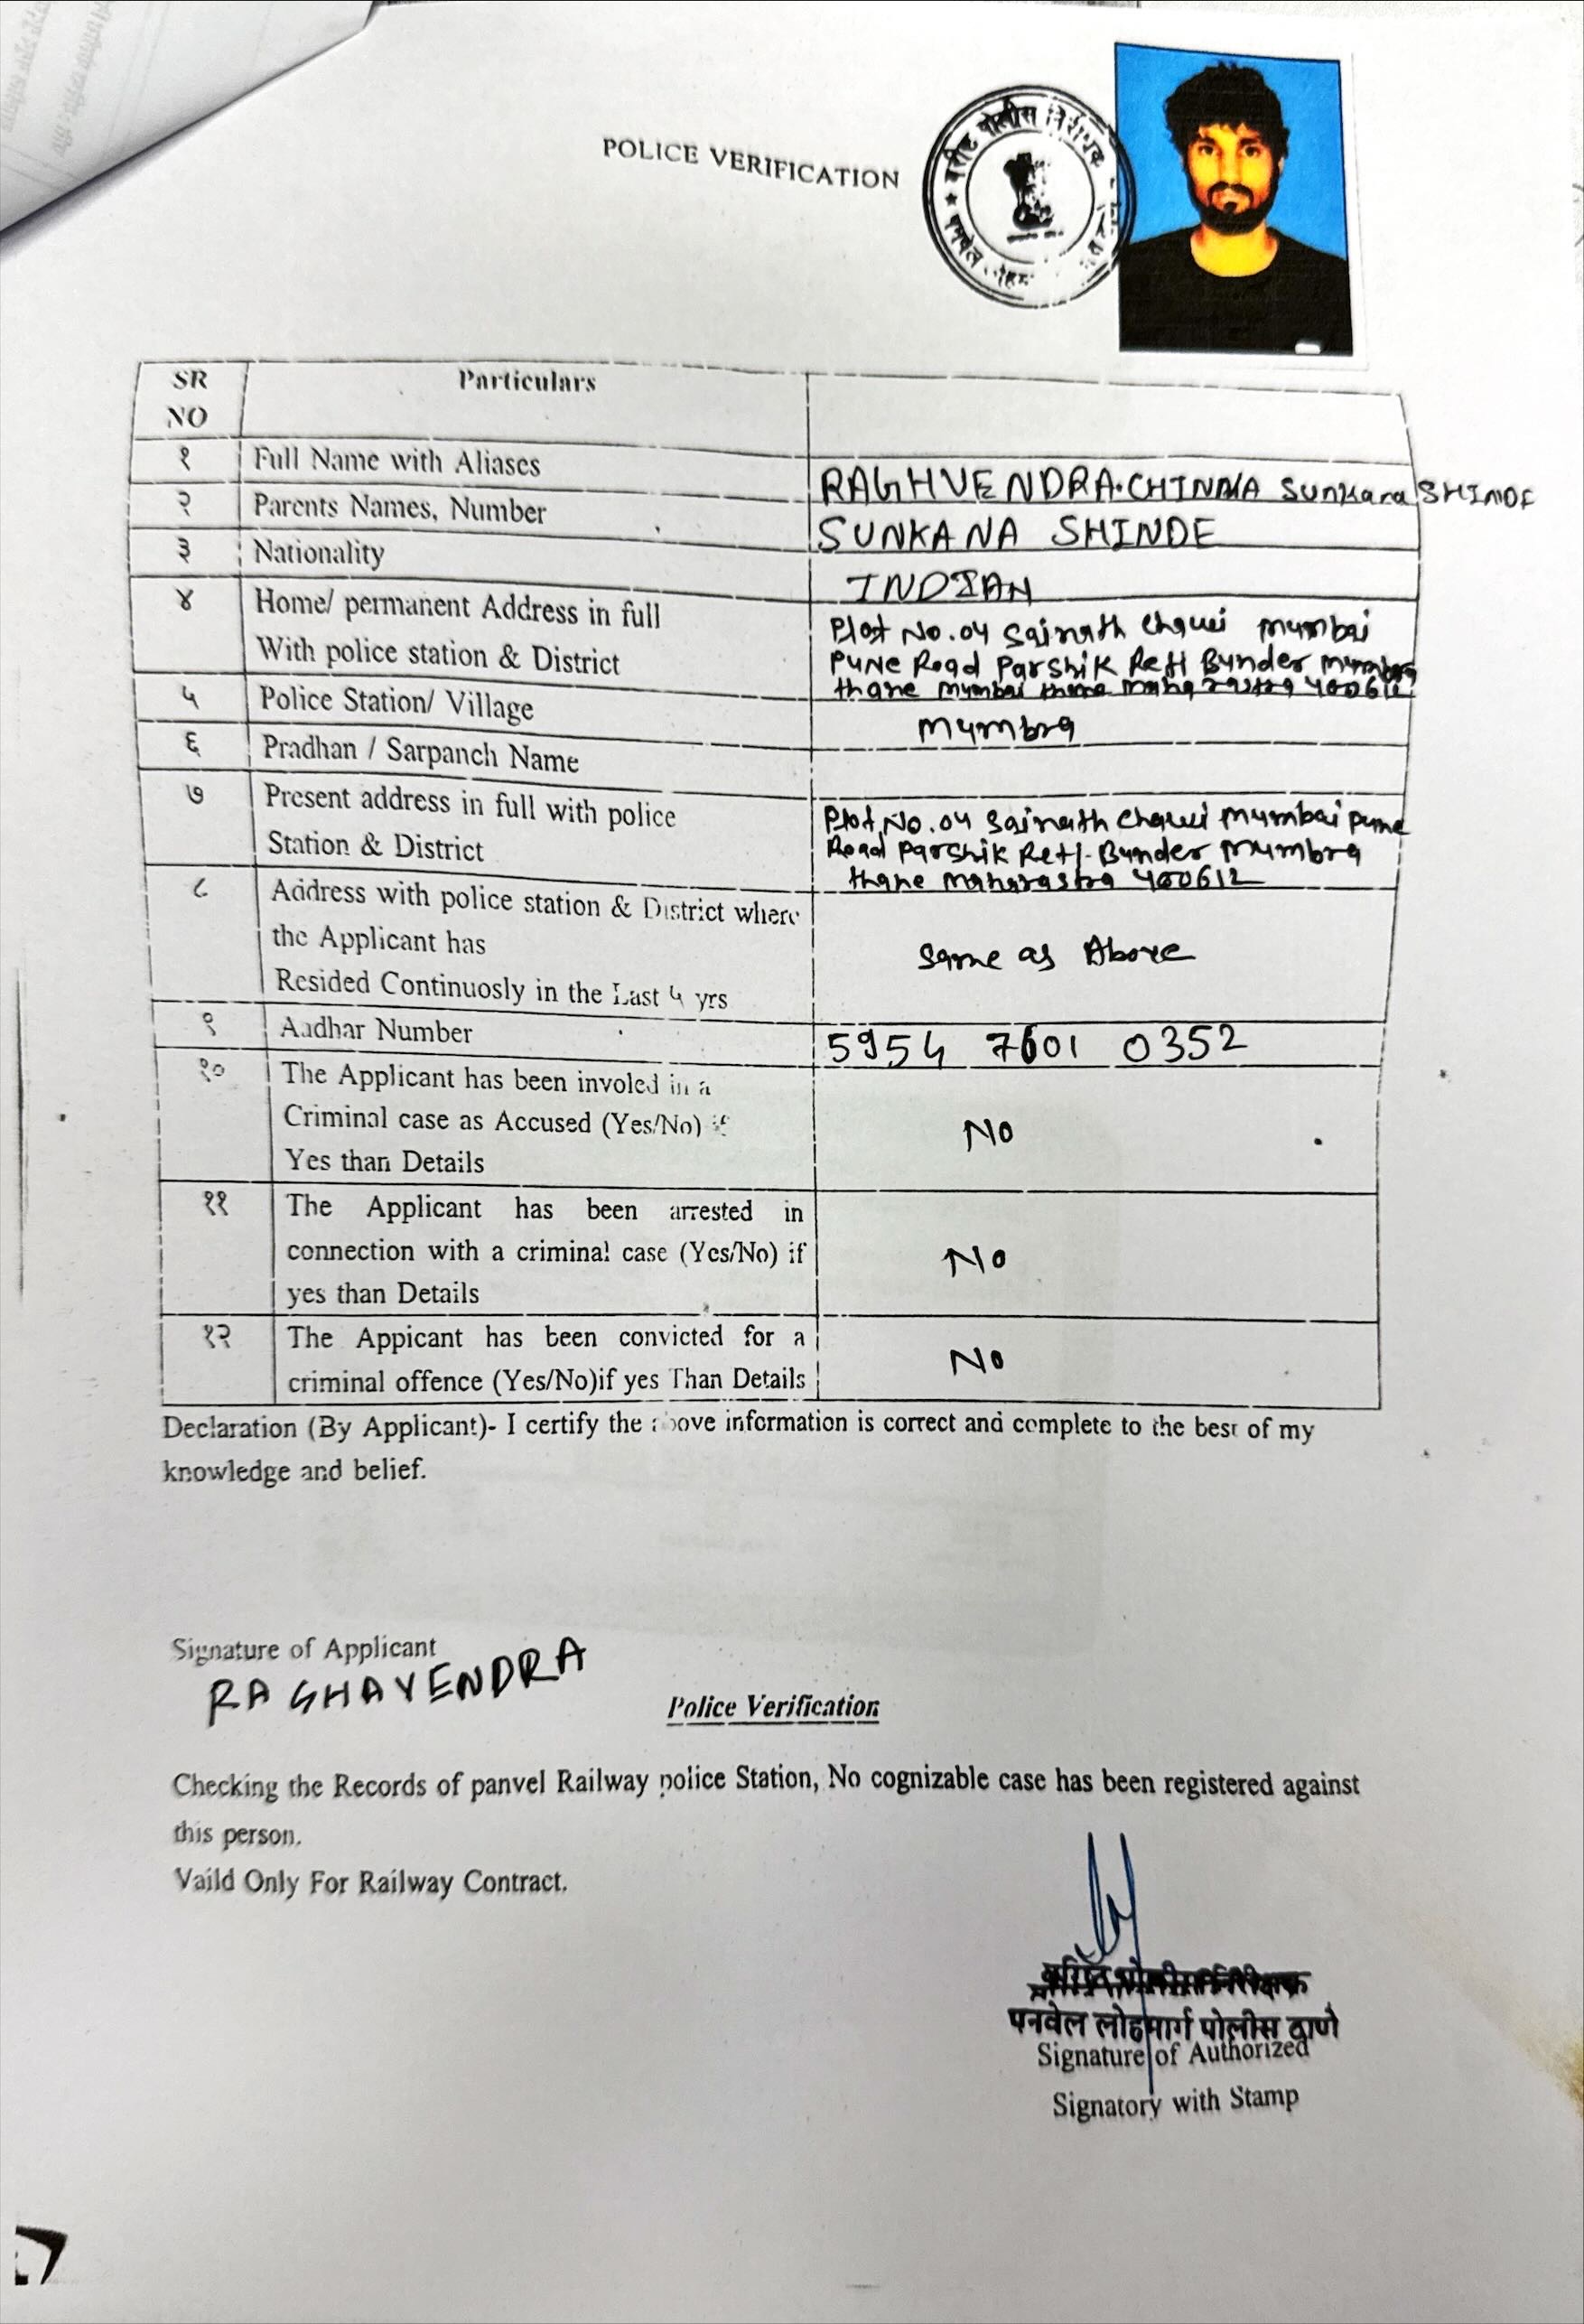 POLICE VERIFICATION
SR NO Particulars
१ Full Name with Aliases RAGHVENDRA CHINNA Sunkana SHINDE
२ Parents Names, Number SUNKANA SHINDE
३ Nationality INDIAN
४ Home/ permanent Address in full Plot No.04 Sainath Chawl Mumbai
With police station & District Pune Road Parshik Reti Bunder Mumbra
thane Mumbai thane Maharastra 400612
५ Police Station/ Village Mumbra
६ Pradhan / Sarpanch Name
७ Present address in full with police Plot No.04 Sainath Chawl Mumbai Pune
Station & District Road Parshik Reti-Bunder Mumbra
thane Maharastra 400612
८ Address with police station & District where
the Applicant has Same as Above
Resided Continuosly in the Last ५ yrs
९ Aadhar Number 5954 7601 0352
१० The Applicant has been involed in a
Criminal case as Accused (Yes/No) if No
Yes than Details
११ The Applicant has been arrested in
connection with a criminal case (Yes/No) if No
yes than Details
१२ The Appicant has been convicted for a No
criminal offence (Yes/No)if yes Than Details
Declaration (By Applicant)- I certify the above information is correct and complete to the best of my
knowledge and belief.
Signature of Applicant
RAGHAVENDRA
Police Verification
Checking the Records of panvel Railway police Station, No cognizable case has been registered against
this person.
Vaild Only For Railway Contract.
पनवेल लोहमार्ग पोलीस ठाणे
Signature of Authorized
Signatory with Stamp